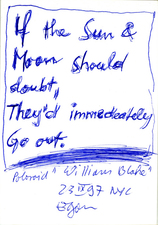 If the Sun &
Moon should
doubt,
They'd immediately
Go out.
"William Blake"
23 IX 97 NYC